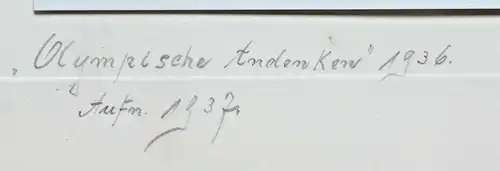 „Olympische Andenken" 1936.
Aufn. 1937.